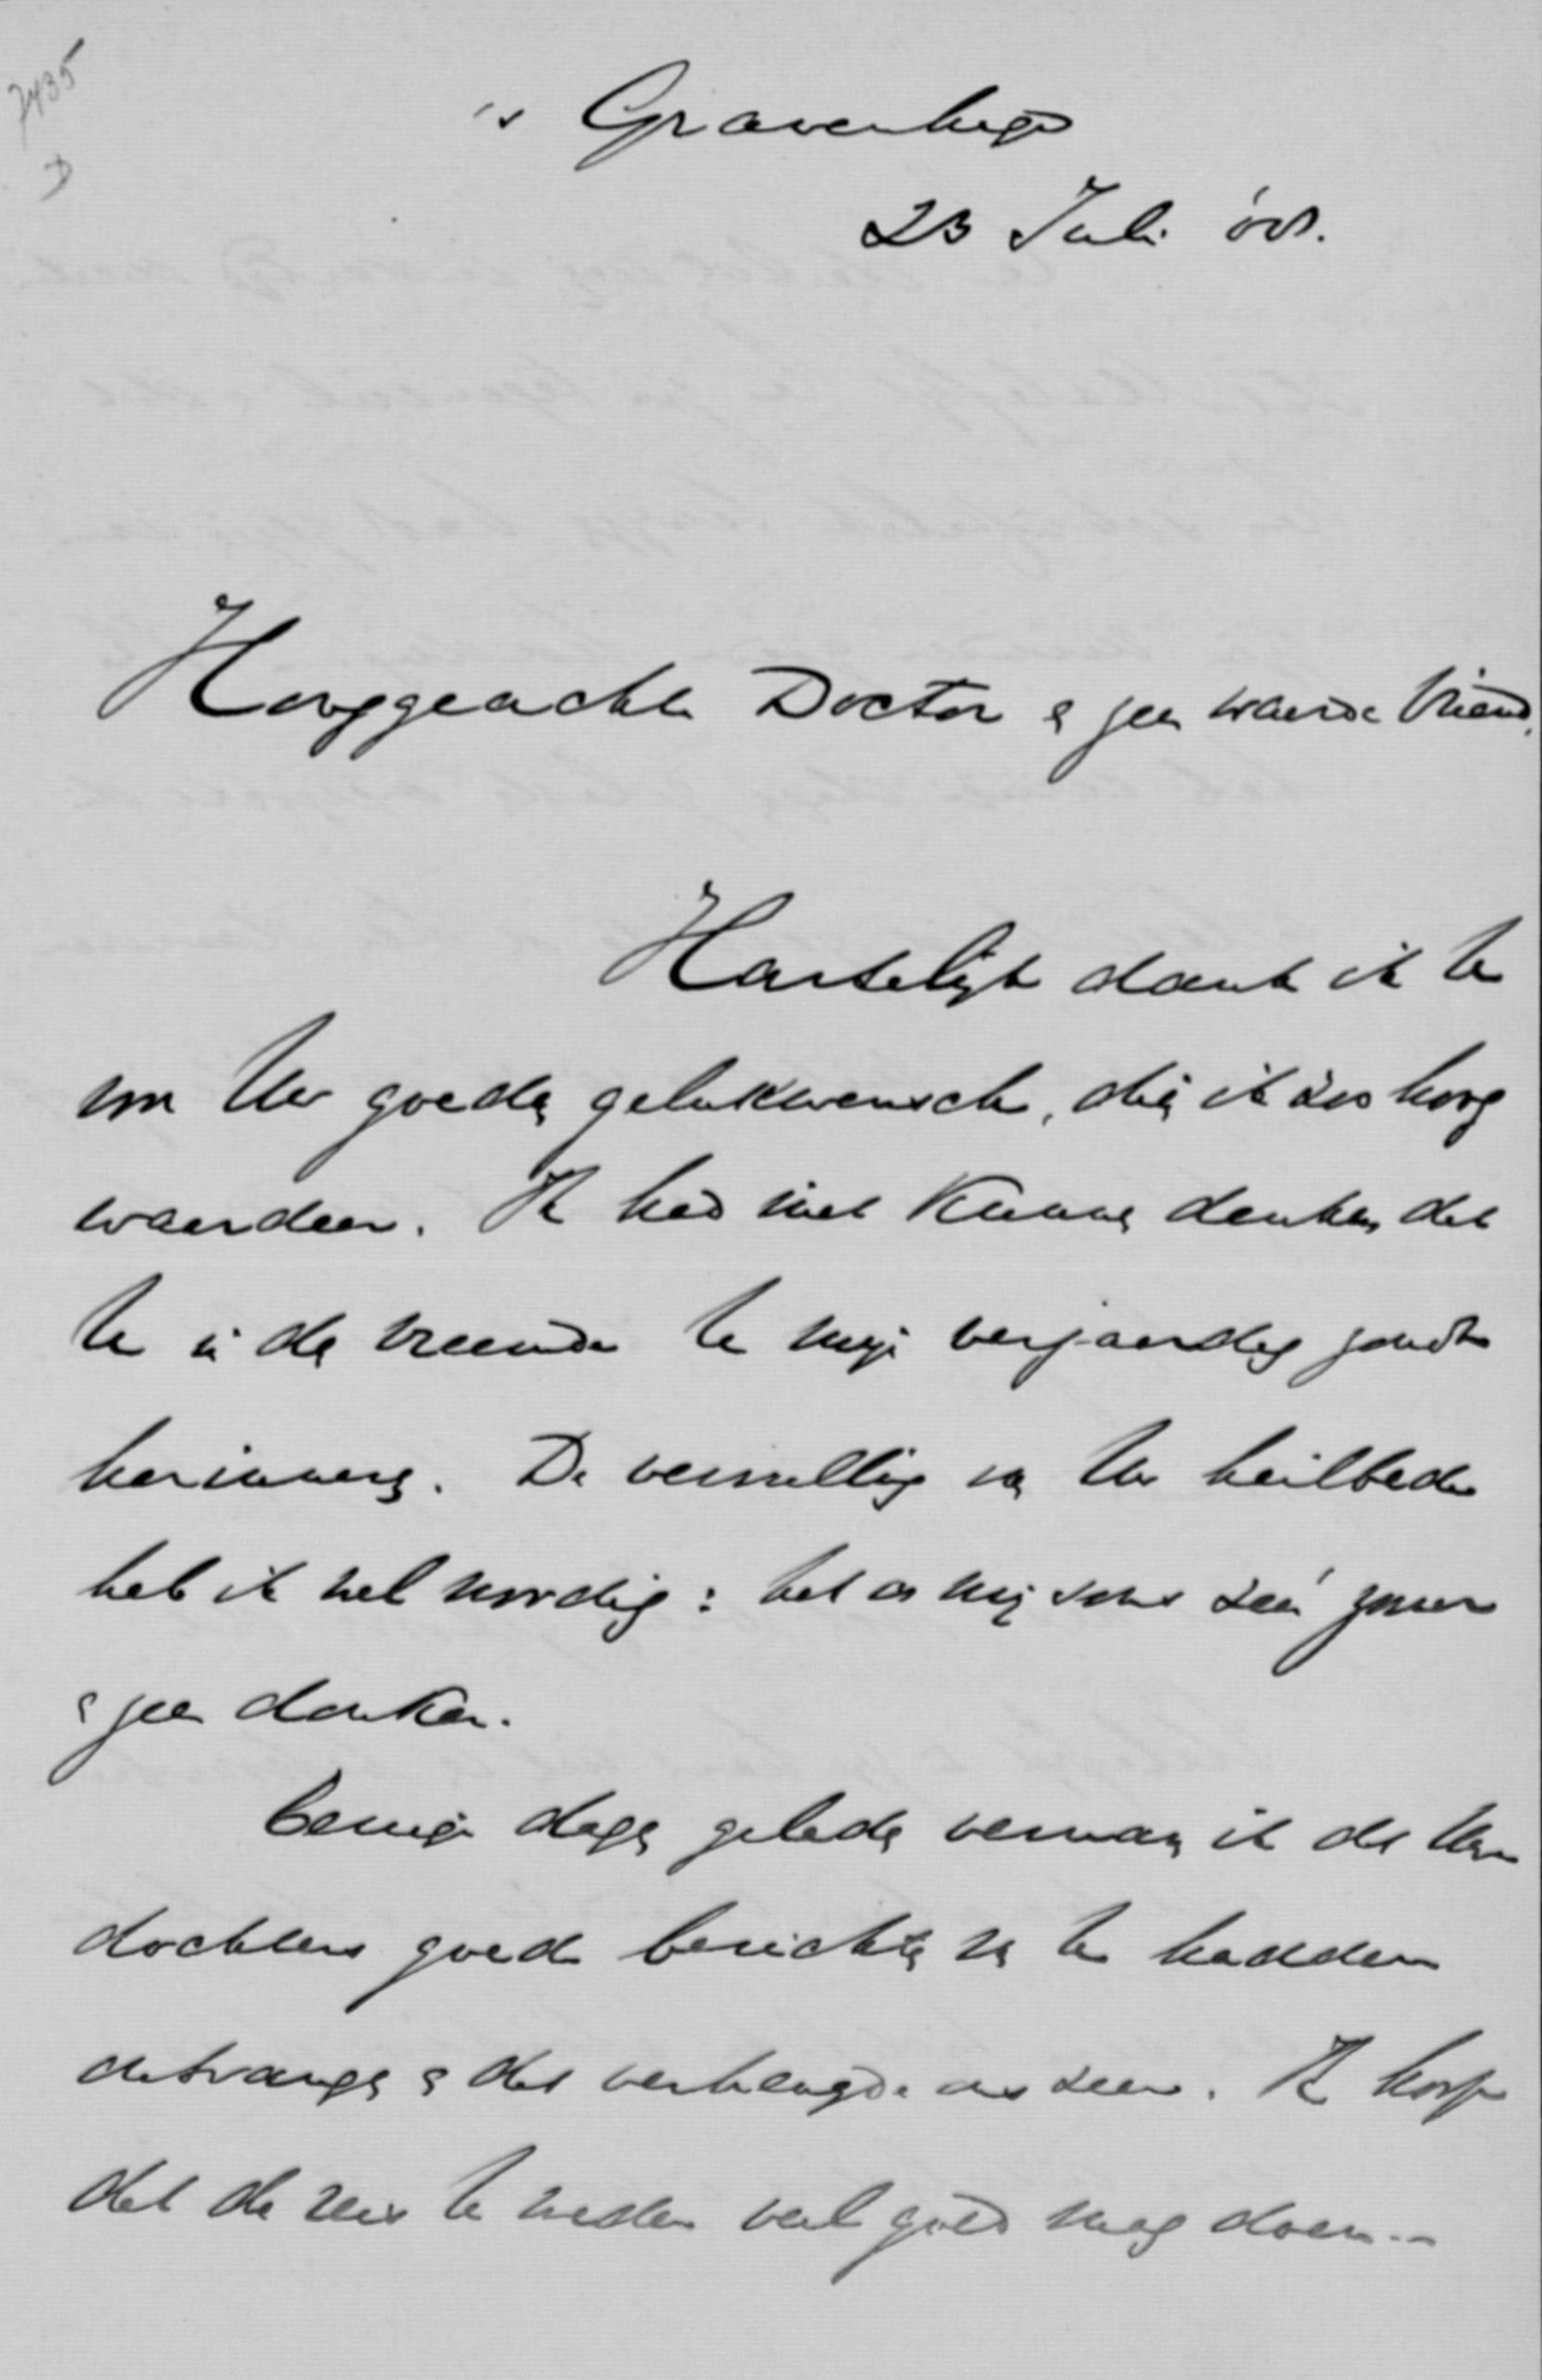 7435
D
's Gravenhage
23 Juli '08.
Hooggeachte Doctor & zeer waarde Vriend,
Hartelijk dank ik U
voor Uw goede gelukwensch, die ik zoo hoog
waardeer. Ik had niet kunnen denken dat
U in de vreemde U mijn verjaardag zoudt
herinneren. De vervulling van Uw heilbede
heb ik wel noodig: het is mij soms zeer zwaar
& zeer donker.
Eenige dagen geleden vernam ik dat Uw
dochters goede berichten van U hadden
ontvangen & dat verheugde ons zeer. Ik hoop
dat de reis U verder veel goed mag doen. –